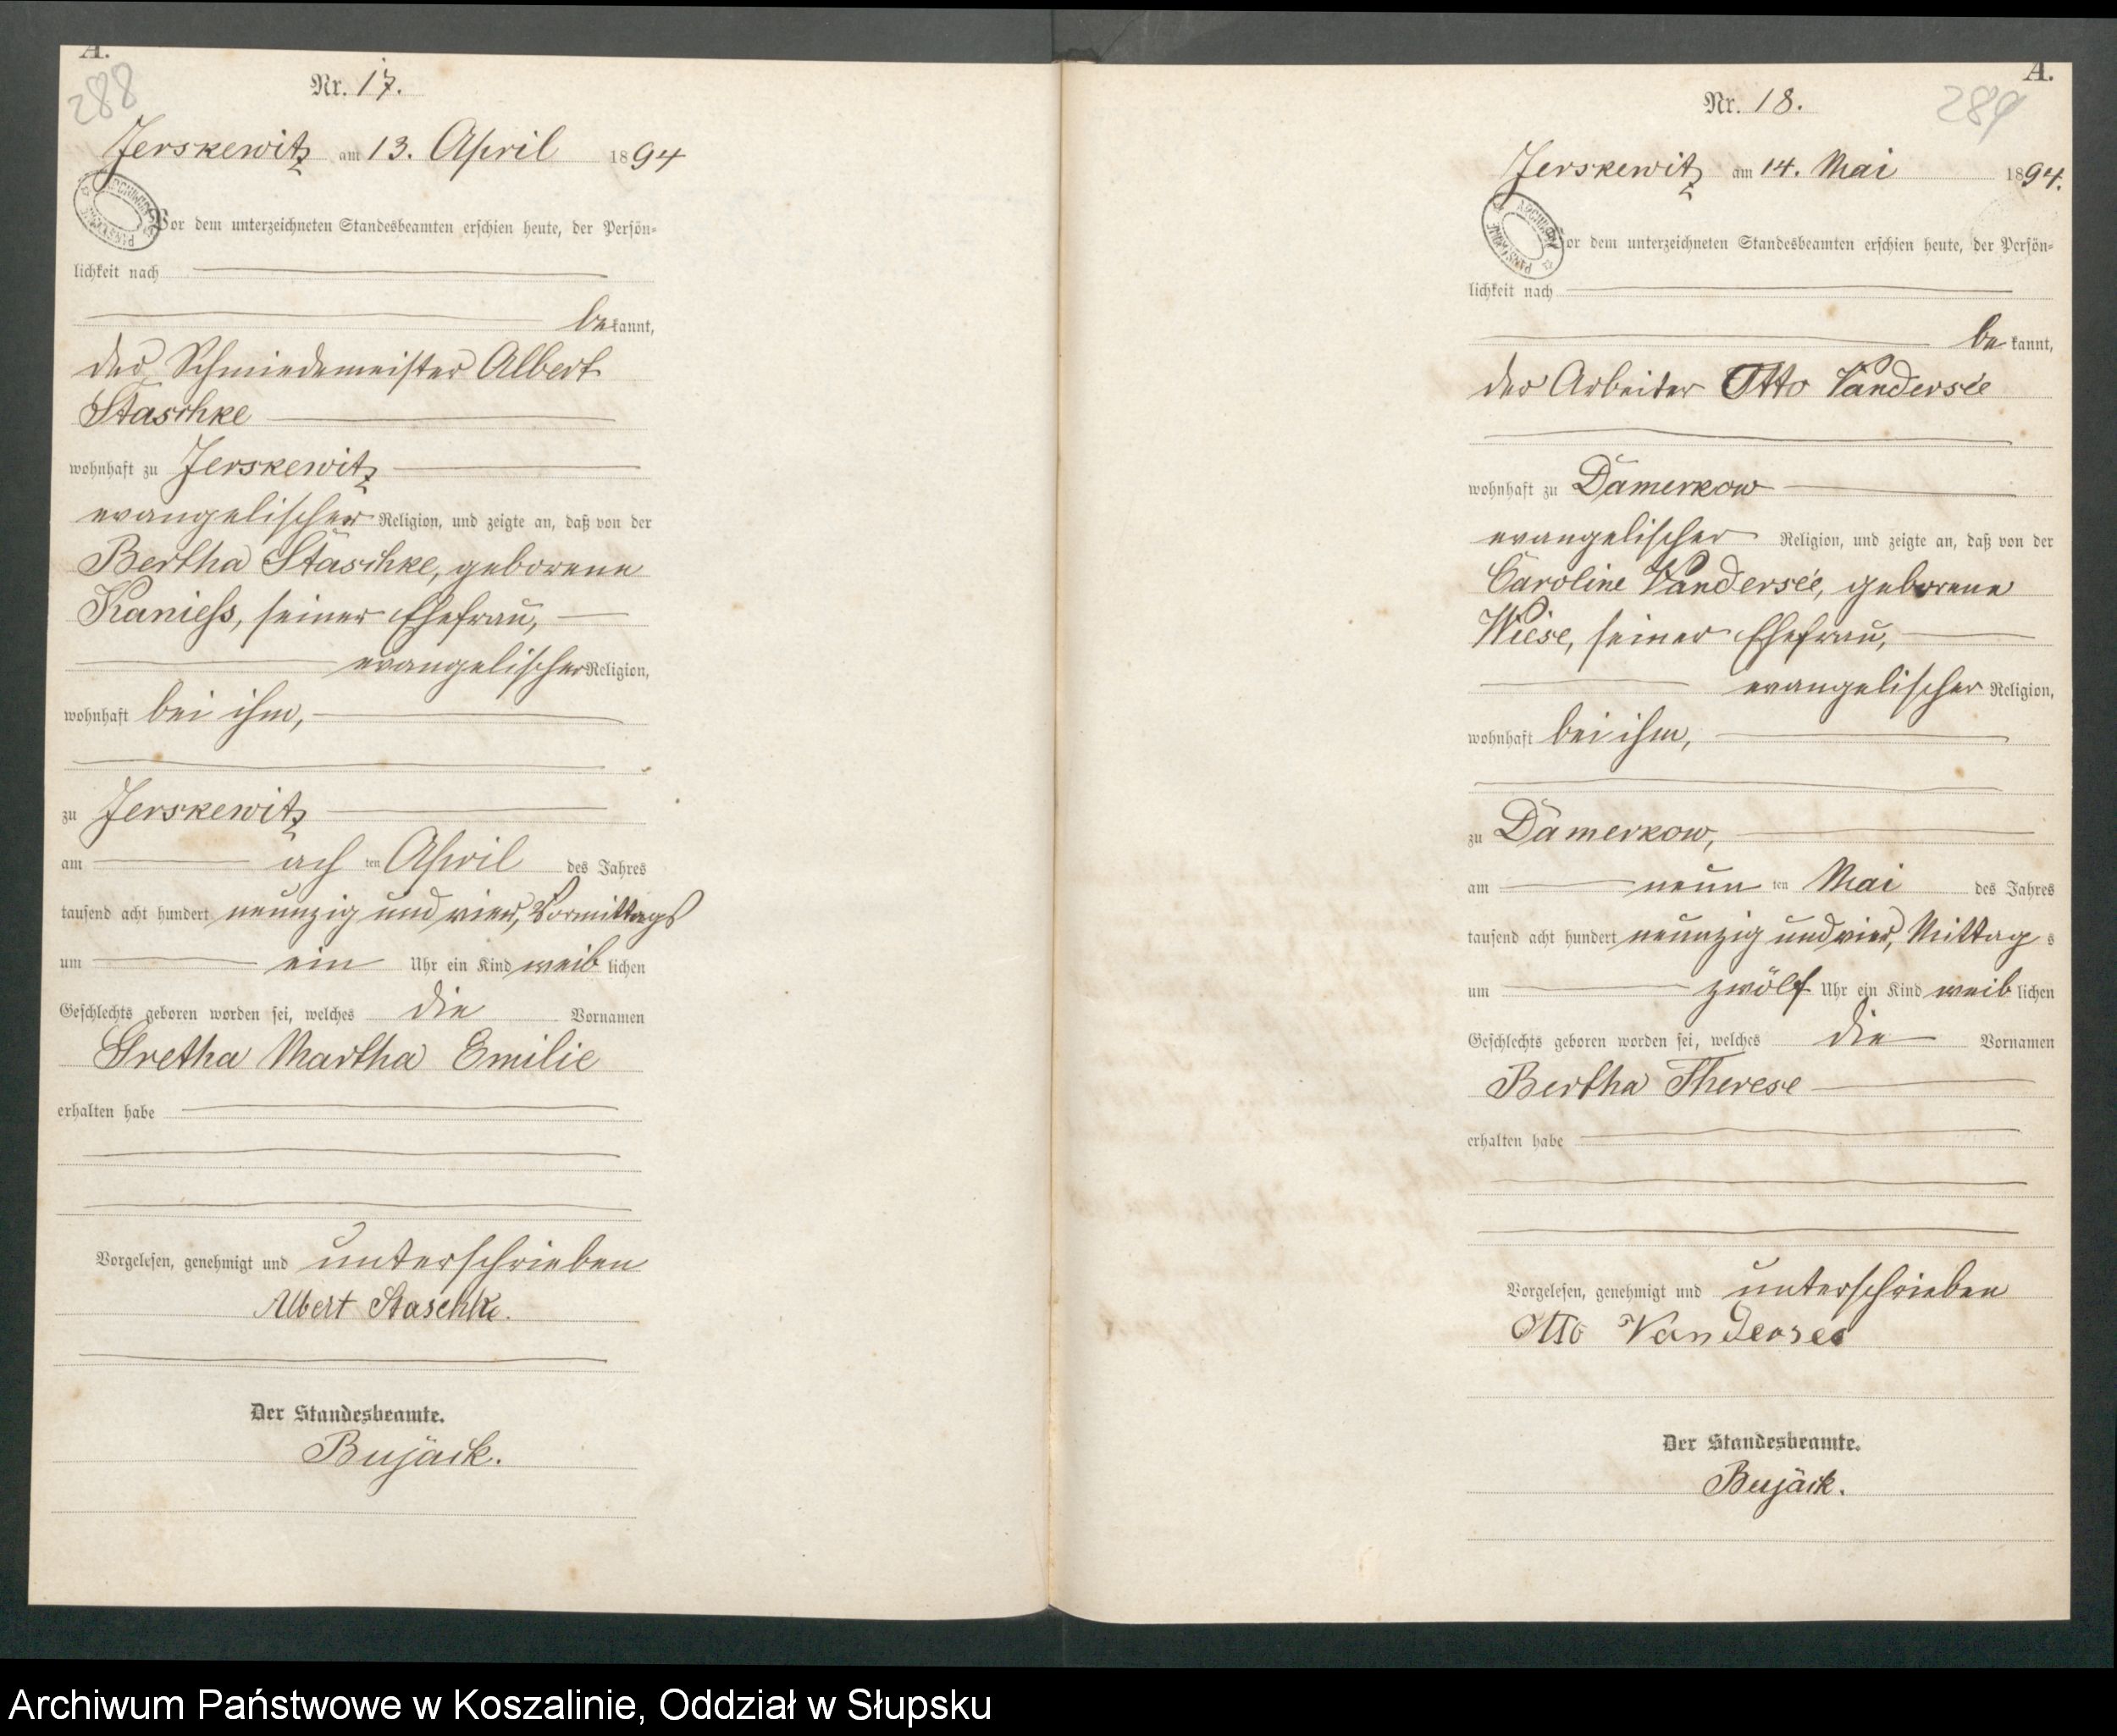 A.
288
Nr. 17.
Jerskewitz am 13. April 1894
Vor dem unterzeichneten Standesbeamten erschien heute, der Persön-
lichkeit nach
bekannt,
der Schmiedemeister Albert
Staschke
wohnhaft zu Jerskewitz
evangelischer Religion, und zeigte an, daß von der
Bertha Staschke, geborene
Kaniess, seiner Ehefrau,
evangelischer Religion,
wohnhaft bei ihm,
zu Jerskewitz
am achten April des Jahres
tausend acht hundert neunzig und vier, Vormittags
um ein Uhr ein Kind weiblichen
Geschlechts geboren worden sei, welches die Vornamen
Gretha Martha Emilie
erhalten habe
Vorgelesen, genehmigt und unterschrieben
Albert Staschke.
Der Standesbeamte.
Bujack.
A.
289
Nr. 18.
Jerskewitz am 14. Mai 1894.
Vor dem unterzeichneten Standesbeamten erschien heute, der Persön-
lichkeit nach
bekannt,
der Arbeiter Otto Vandersée
wohnhaft zu Damerkow
evangelischer Religion, und zeigte an, daß von der
Caroline Vandersée, geborene
Wiese, seiner Ehefrau,
evangelischer Religion,
wohnhaft bei ihm,
zu Damerkow,
am neunten Mai des Jahres
tausend acht hundert neunzig und vier, Mittags
um zwölf Uhr ein Kind weiblichen
Geschlechts geboren worden sei, welches die Vornamen
Bertha Therese
erhalten habe
Vorgelesen, genehmigt und unterschrieben
Otto Vandersee
Der Standesbeamte.
Bujack.
Archiwum Państwowe w Koszalinie, Oddział w Słupsku